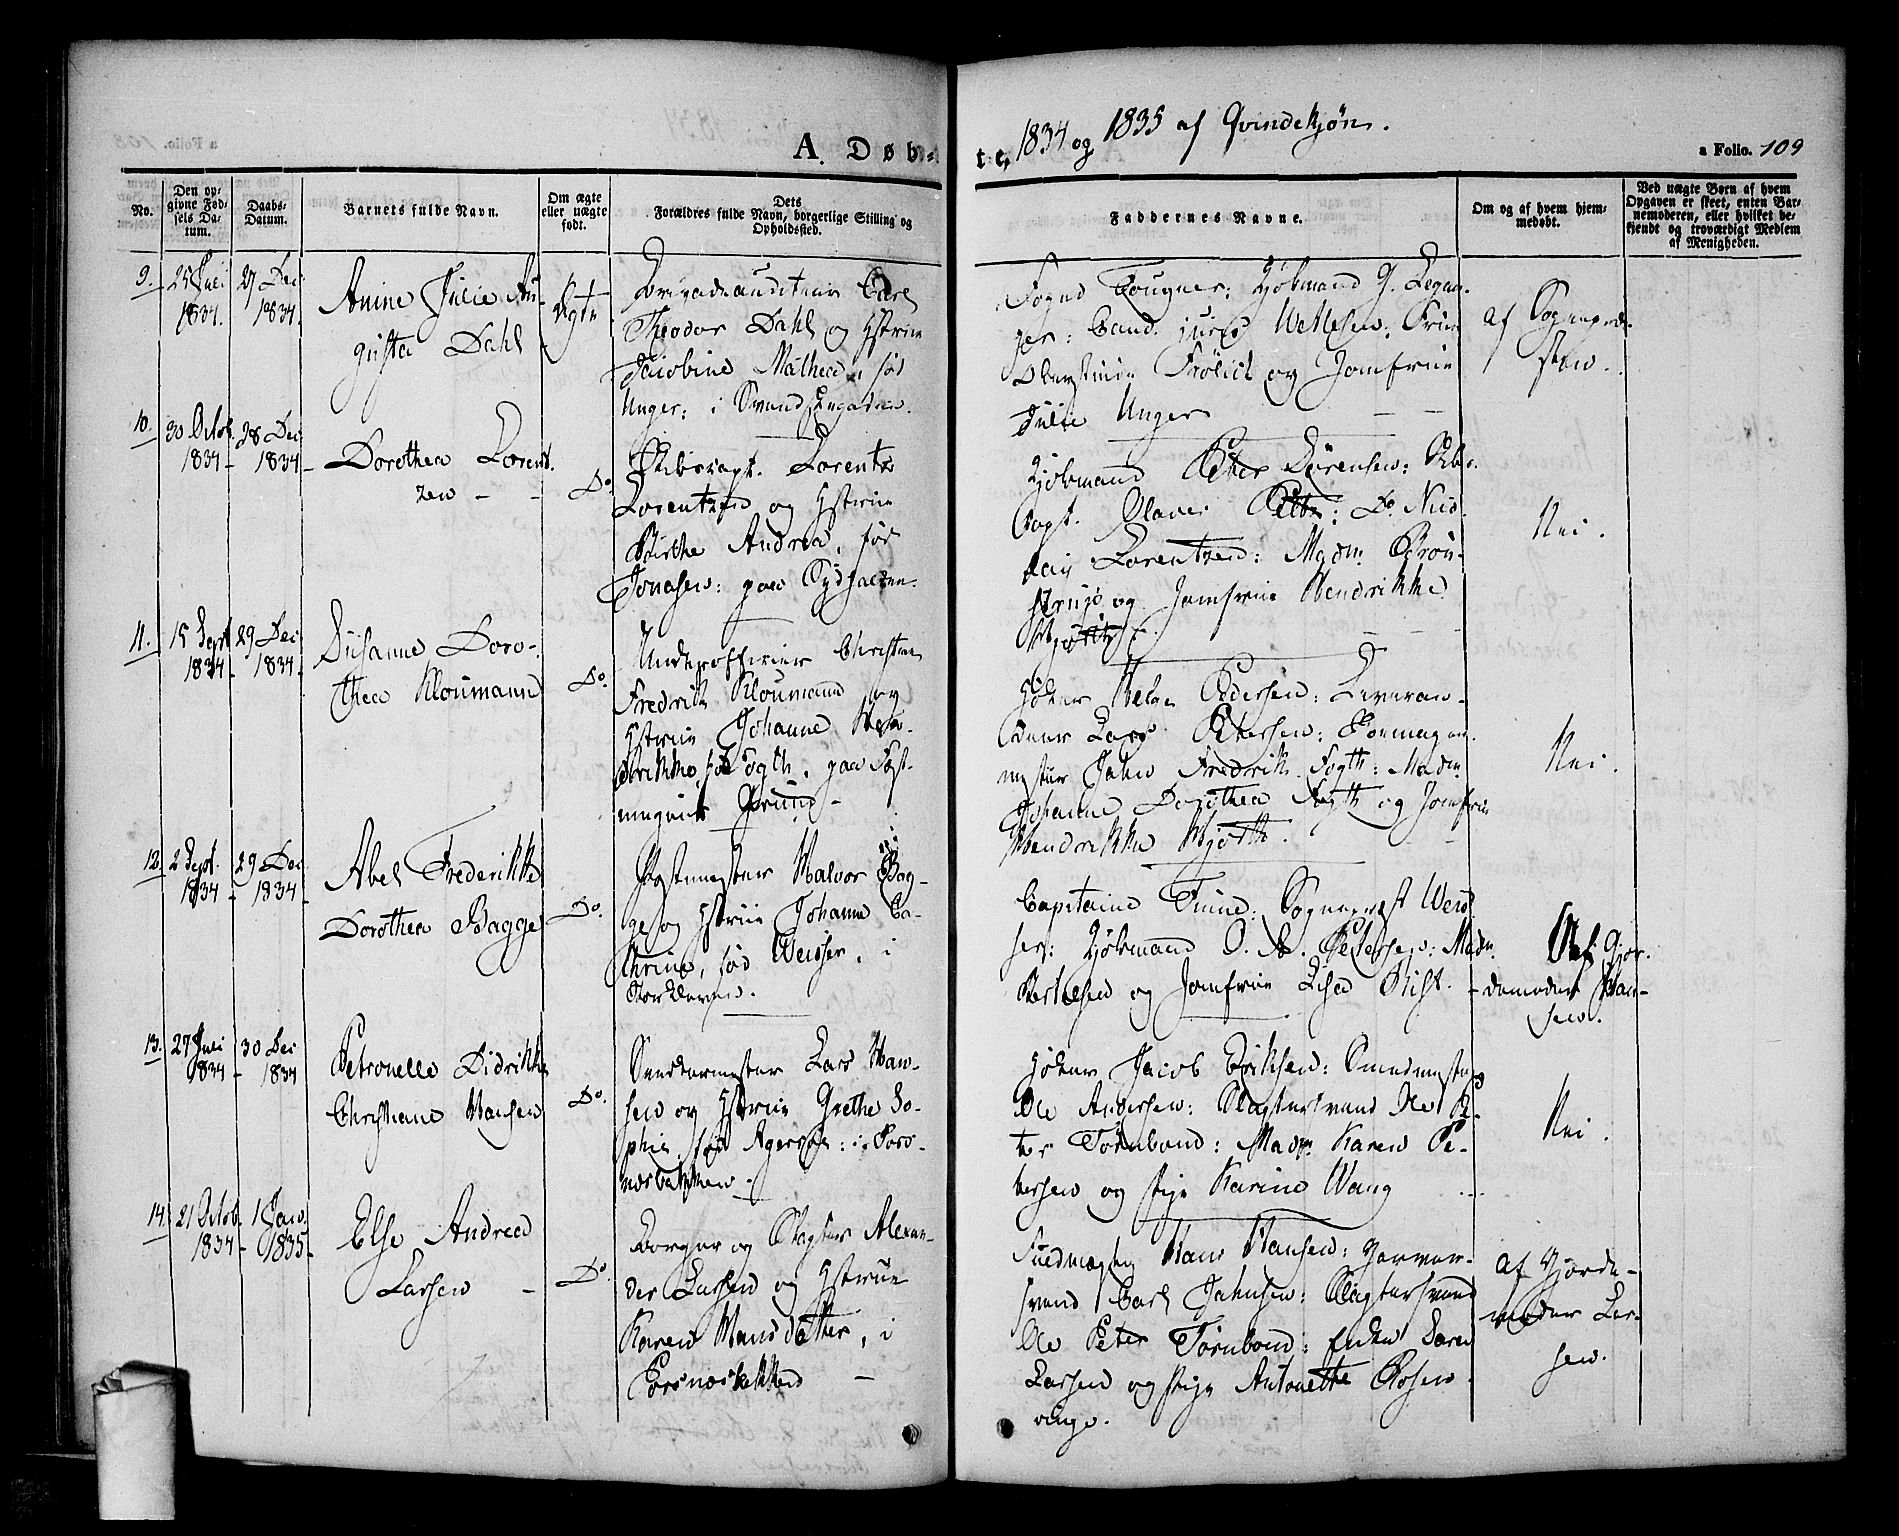 A. Døb-
te, 1834 og 1835 af Qvindekjøn.
a Folio. 109
No.
Den op-
givne Fød-
sels Da-
tum.
Daabs-
Datum.
Barnets fulde Navn.
Om ægte
eller uægte
født.
Dets
Forældres fulde Navn, borgerlige Stilling og
Opholdssted.
Faddernes Navne.
Om og af hvem hjem-
medøbt.
Ved uægte Børn af hvem
Opgaven er skeet, enten Bar-
nemoderen, eller hvilket be-
kjendt og troværdigt Medlem
af Menigheden.
9.
25 Juli
1834.
27 Dec
1834.
Anine Julie Au-
gusta Dahl
Ægte
Brigadeauditeur Carl
Theodor Dahl og Hstrue
Jacobine Mathea, fød
Unger: i
Foged Fougner: Kjøbmand G.
Cand. juris Wetlesen: Frue
Oberstinde Frölich og Jomfrue
Julie Unger
af Sognepræ-
sten.
10.
30 Octob.
1834
28 Dec
1834
Dorothea Lorent-
zen
Do.
Skibscapt. Lorentz
Lorentzen og Hstrue
Birthe Andrea, fød
Jonasen: paa
Kjøbmand Peter Sørensen: Skbs.
Capt. Olaves: Do. Nico-
lay Lorentzen: Madm.
og Jomfrue Hendrikke
Hjorth.
Nei.
11.
15 Sept
1834
29 Dec
1834
Susanne Doro-
thea Kloumann
Do.
Underofficier Christian
Fredrik Kloumann og
Hstrue Johanne Hen-
drikke, fød Fogth, paa Fæst-
ningens Grund
Høker Helge Pedersen: Leveran-
deur Lars Petersen:
mester John Fredrik Fogth: Madm.
Johanne Dorothea Fogth og Jomfrue
Hendrikke Hjorth.
Nei.
12.
2 Sept.
1834
29 Dec
1834
Abel Frederikke
Dorothea Bagge
Do.
Postmester Halvor Bag-
ge og Hstrue Johanne Ca-
thrine, fød Weisser, i
Capitaine: Sogneprest
Kjøbmand Petersen: Madm.
Bertelsen og Jomfrue Lisa
Af Gjor-
demoder Han-
sen.
13.
27 Juli
1834
30 Dec
1834
Petronelle Didrikke
Christiane Hansen
Do.
Snedkermester Lars Han-
sen og Hstrue Grethe So-
phie, fød: i Fors-
næsbakken.
Høker Jacob Eriksen: Smedmester
Ole Andersen: Slagtersvend Ole Pe-
ter Tørnbond: Madm. Karen Pe-
tersen og Pige Karine Wang
Nei.
14.
21 Octob.
1834
1 Janv.
1835
Else Andrea
Larsen
Do.
Borger og Slagter Alexan-
der Larsen og Hstrue
Karen Hansdatter, i
Forsnæsbakken
Hans Hansen: Garver-
svend Carl Johnsen: Slagtersvend
Ole Peter Tørnbond: Enken Karen
Larsen og Pige Antonette Rosen-
vinge.
af Gjorde-
moder Lar-
sen.